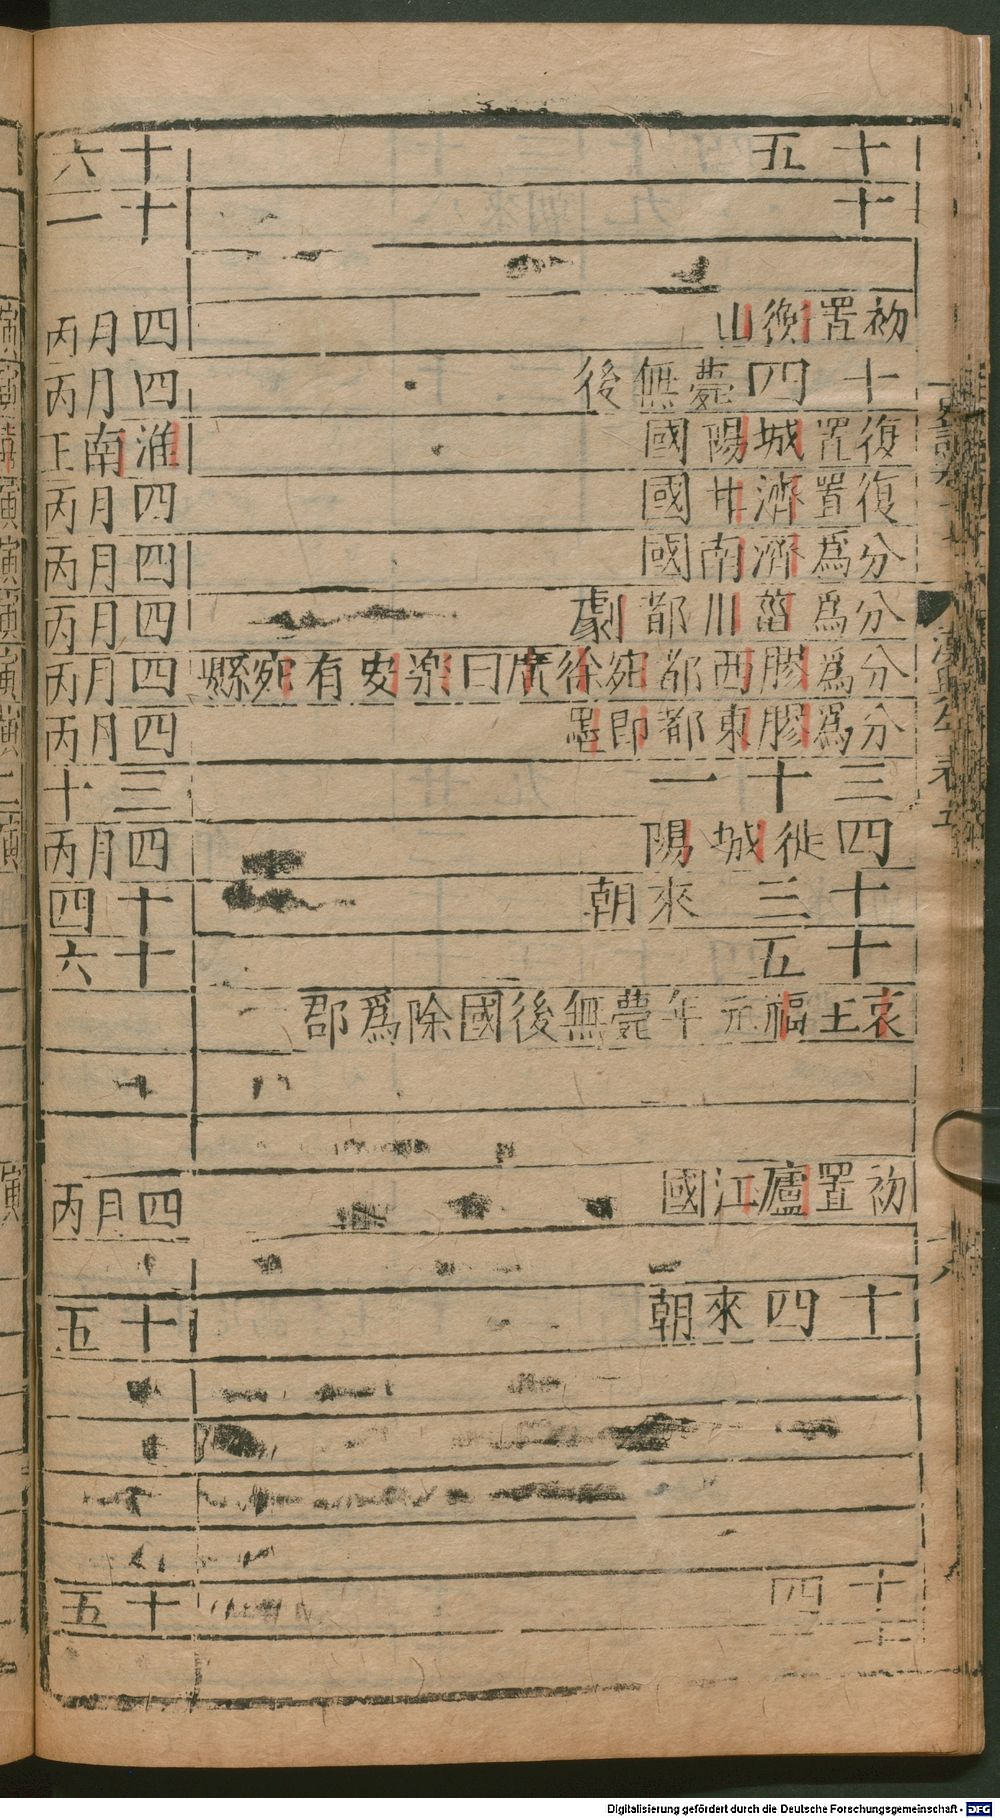 十五
十
初置衡山
十四薨無後
復置城陽國
復置濟北國
分為濟南國
分為菑川都劇
分為膠西都宛徐廣曰樂安有宛縣
分為膠東都即墨
三十一
四徙城陽
十三來朝
十五
哀王福元年薨無後國除為郡
初置廬江國
十四來朝
十四
十六
十一
四月丙
四月丙
淮南王
四月丙
四月丙
四月丙
四月丙
四月丙
三十
四月丙
十四
十六
四月丙
十五
十五
Digitalisierung gefördert durch die Deutsche Forschungsgemeinschaft - DFG